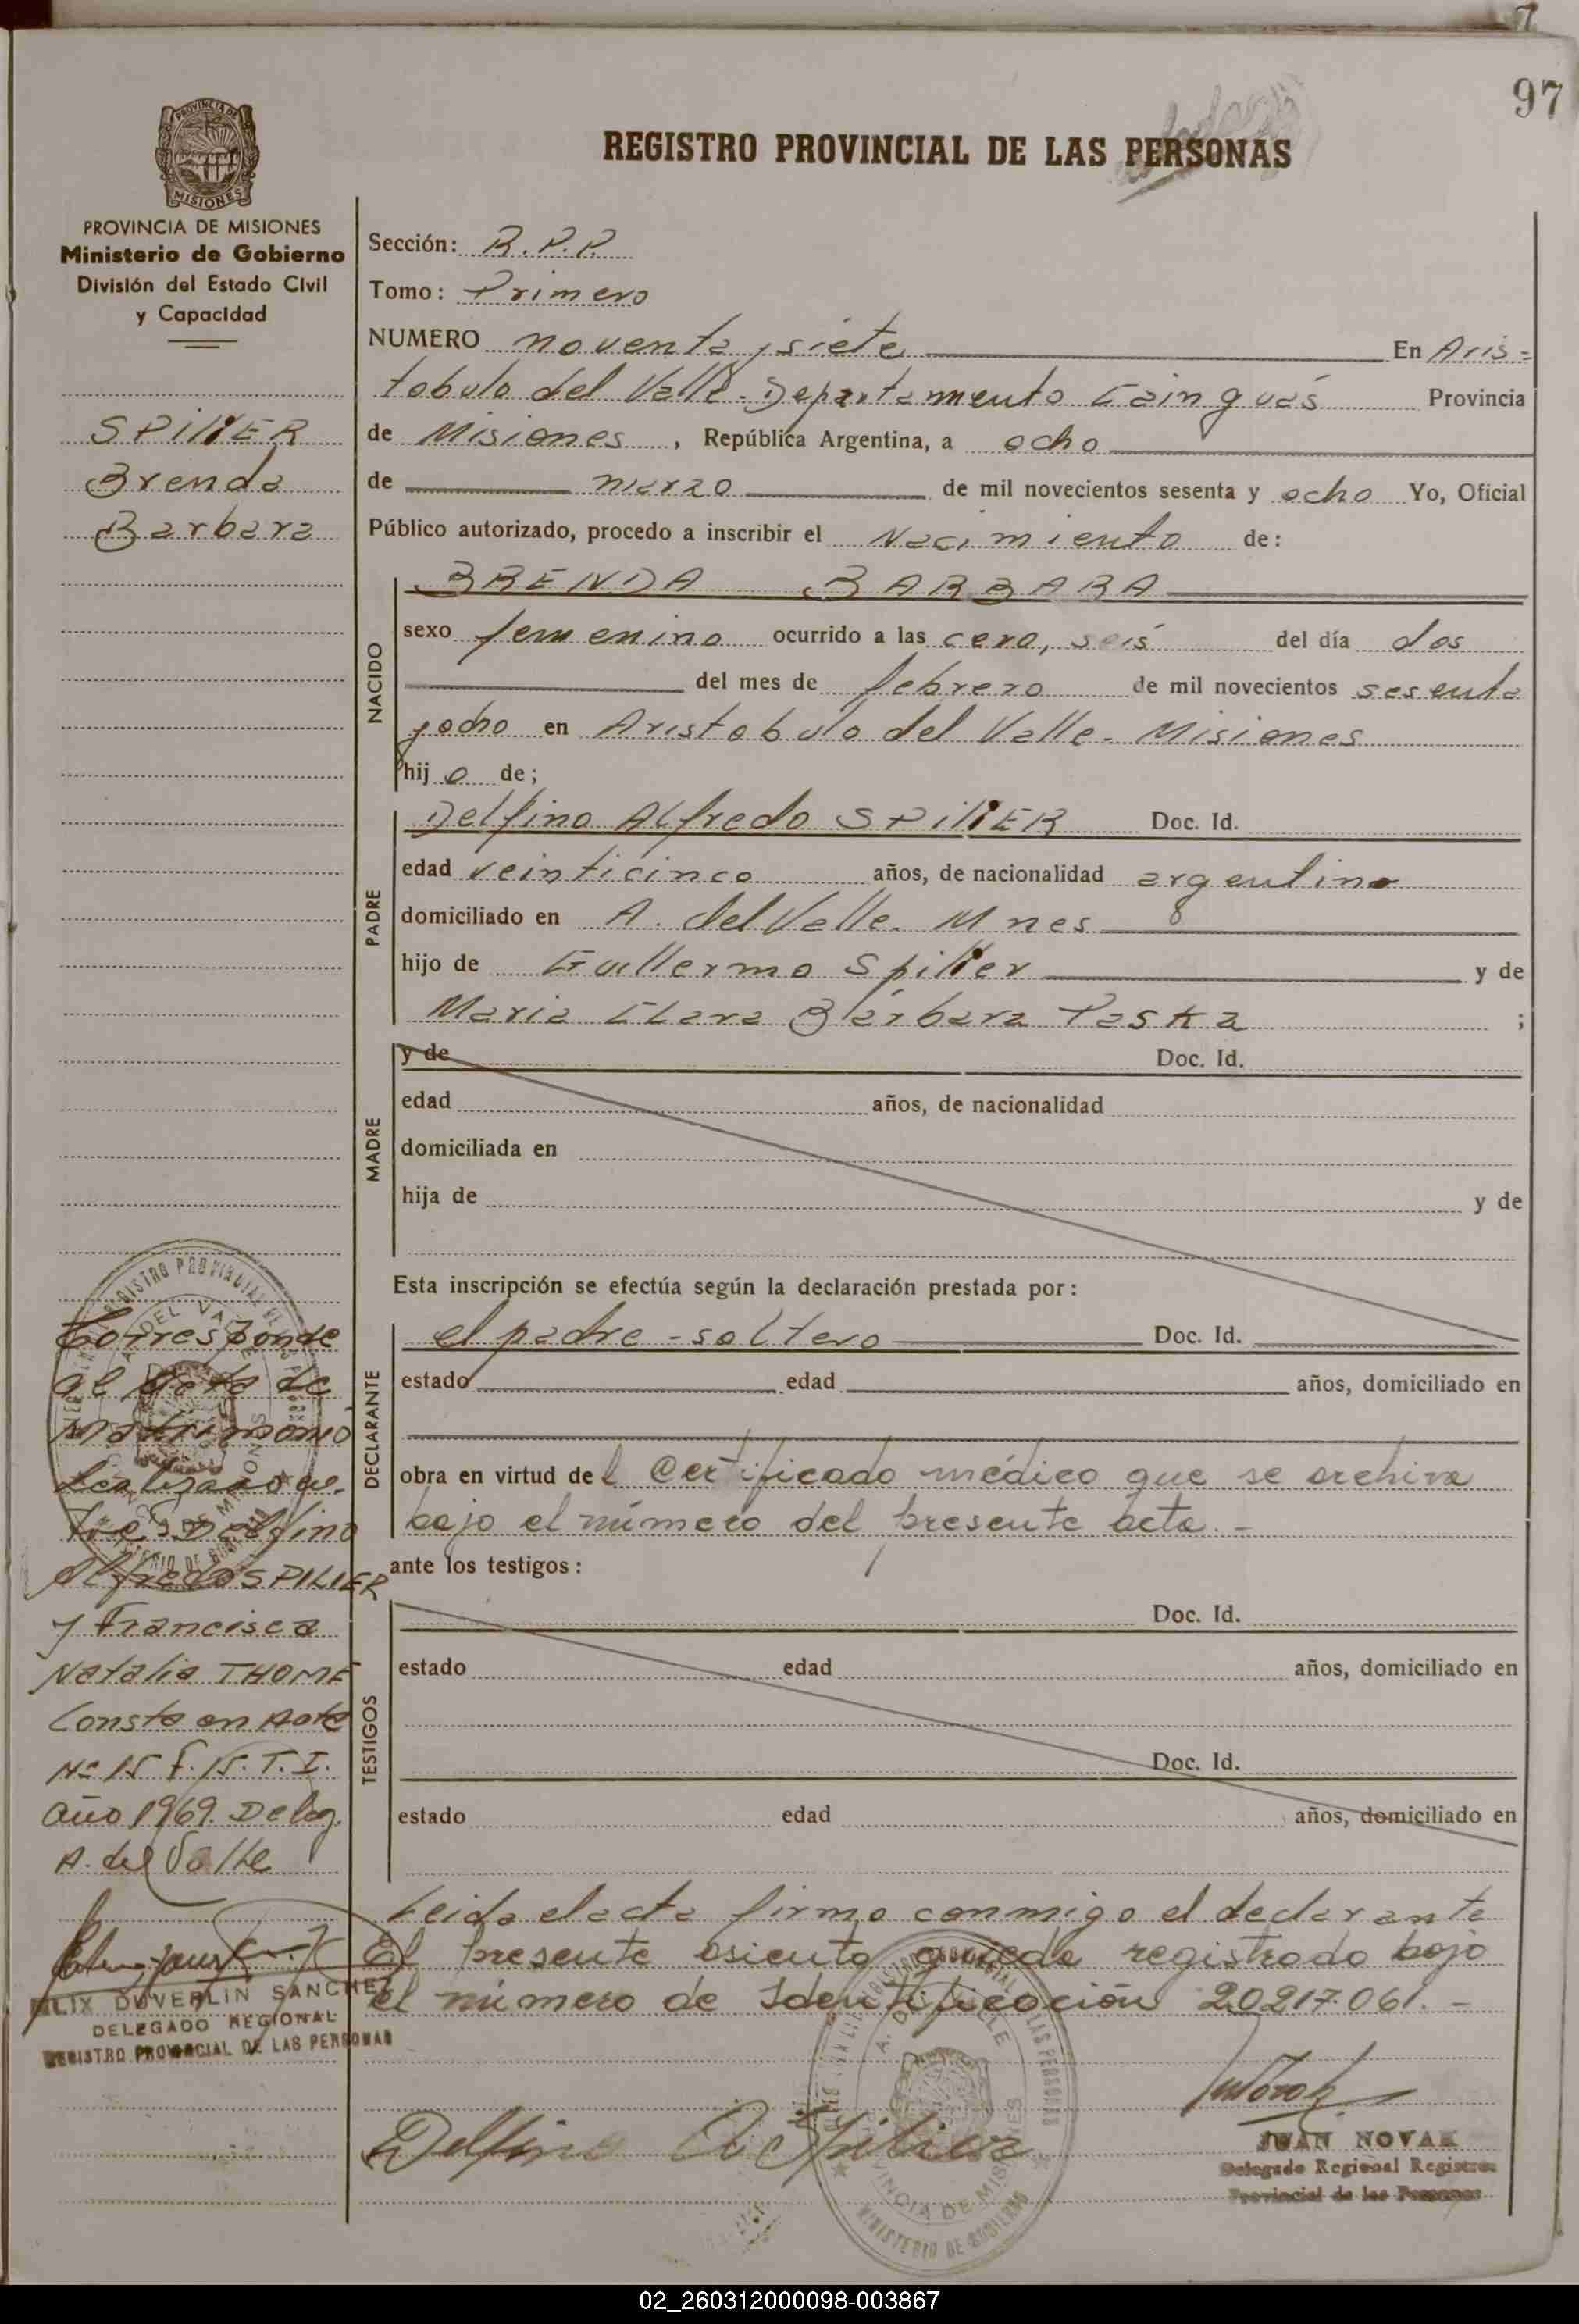 7
97
PROVINCIA DE
MISIONES
REGISTRO PROVINCIAL DE LAS PERSONAS
PROVINCIA DE MISIONES
Ministerio de Gobierno
División del Estado Civil
y Capacidad
SPILIER
Brenda
Barbara
Sección: R.P.P.
Tomo: Primero
NUMERO noventa y siete En Aris=
tobulo del Valle. Departamento Cainguás Provincia
de Misiones, República Argentina, a ocho
de marzo de mil novecientos sesenta y ocho Yo, Oficial
Público autorizado, procedo a inscribir el Nacimiento de:
NACIDO
BRENDA BARBARA
sexo femenino ocurrido a las cero, seis del día dos
del mes de febrero de mil novecientos sesenta
y ocho en Aristobulo del Valle. Misiones
hijo de;
PADRE
Delfino Alfredo SPILIER Doc. Id.
edad veinticinco años, de nacionalidad argentino
domiciliado en A. del Valle. Mnes
hijo de Guillermo Spilier y de
Maria Clara Bárbara Paska ;
MADRE
y de Doc. Id.
edad años, de nacionalidad
domiciliada en
hija de y de
Esta inscripción se efectúa según la declaración prestada por:
DECLARANTE
el padre - soltero Doc. Id.
estado edad años, domiciliado en
obra en virtud del Certificado médico que se archiva
bajo el número del presente acta. -
ante los testigos:
TESTIGOS
Doc. Id.
estado edad años, domiciliado en
Doc. Id.
estado edad años, domiciliado en
Leida el acta firma conmigo el declarante
El presente asiento queda registrado bajo
el número de Identificación 20217.061. -
Corresponde
al Acta de
Matrimonio
Realizado
Delfino
Alfredo SPILIER
y Francisca
Natalia THOME
Consta en Acta
Nº 15 F. 15. T. I.
Año 1969. Deleg.
A. del Valle
FELIX DUVERLIN SANCHEZ
DELEGADO REGIONAL
REGISTRO PROVINCIAL DE LAS PERSONAS
Delfino A Spilier
JUAN NOVAK
Delegado Regional Registro
Provincial de las Personas
PROVINCIA DE MISIONES
MINISTERIO DE GOBIERNO
02_260312000098-003867